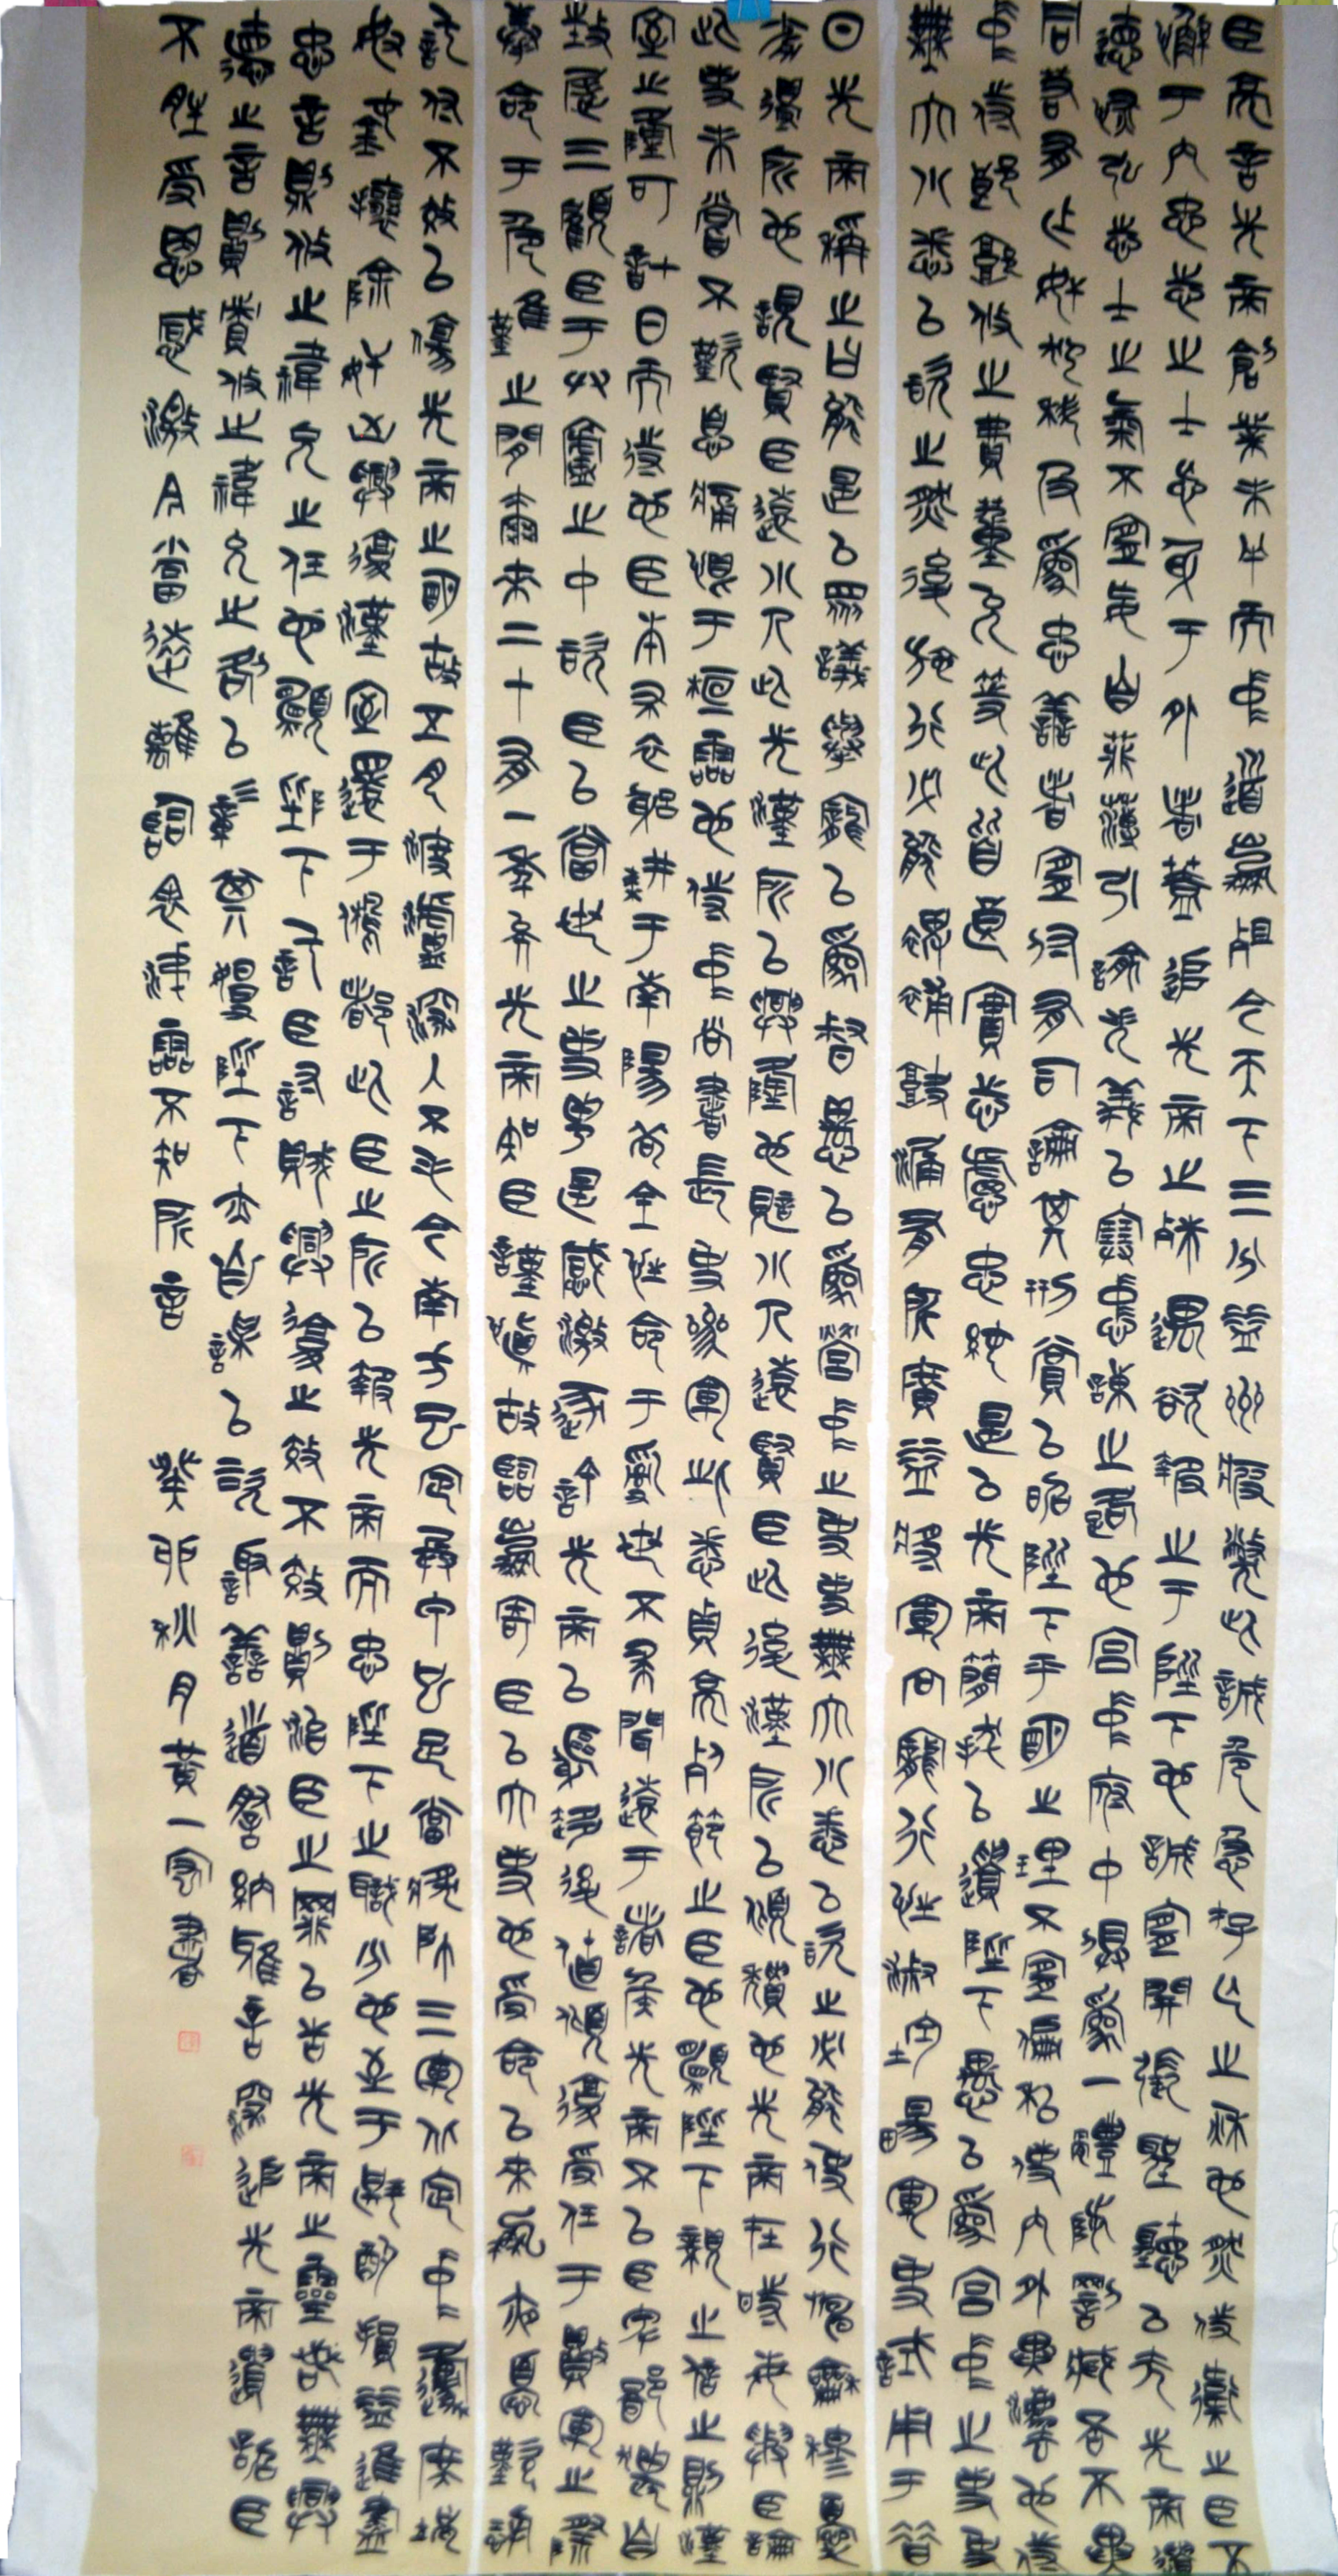 臣亮言先帝創業未半而中道崩殂今天下三分益州疲弊此誠危急存亡之秋也然侍衛之臣不
懈于內忠志之士忘身于外者蓋追先帝之殊遇欲報之于陛下也誠宜開張聖聽以光先帝遺
德恢弘志士之氣不宜妄自菲薄引喻失義以塞忠諫之路也宮中府中俱為一體陟罰臧否不異
同若有作奸犯科及為忠善者宜付有司論其刑賞以昭陛下平明之理不宜偏私使內外異法也侍
中侍郎郭攸之費董允等此皆良實志慮忠純是以先帝簡拔以遺陛下愚以為宮中之事事
無大小悉以咨之然後施行必能裨補闕漏有所廣益將軍向寵行性淑均暢軍事試用于昔
日先帝稱之曰能是以眾議舉寵以為督愚以為營中之事事無大小悉以咨之必能使行陣和穆優
劣得所也親賢臣遠小人此先漢所以興隆也親小人遠賢臣此後漢所以傾頹也先帝在時每與臣論
此事未嘗不歎息痛恨于桓靈也侍中尚書長史參軍此悉貞亮死節之臣也願陛下親之信之則漢
室之隆可計日而待也臣本布衣躬耕于南陽苟全性命于亂世不求聞達于諸侯先帝不以臣卑鄙猥自
枉屈三顧臣于草廬之中咨臣以當世之事由是感激遂許先帝以驅馳後值傾覆受任于敗軍之際
奉命于危難之間爾來二十有一年矣先帝知臣謹慎故臨崩寄臣以大事也受命以來夙夜憂歎恐
託付不效以傷先帝之明故五月渡瀘深入不毛今南方已定兵甲已足當獎帥三軍北定中原庶竭
駑鈍攘除奸凶興復漢室還于舊都此臣之所以報先帝而忠陛下之職分也至于斟酌損益進盡
忠言則攸之禕允之任也願陛下託臣討賊興復之效不效則治臣之罪以告先帝之靈若無興
德之言則責攸之禕允之咎以彰其慢陛下亦自謀以咨諏善道察納雅言深追先帝遺詔臣
不勝受恩感激今當遠離臨表涕零不知所言 癸卯秋月黃一書